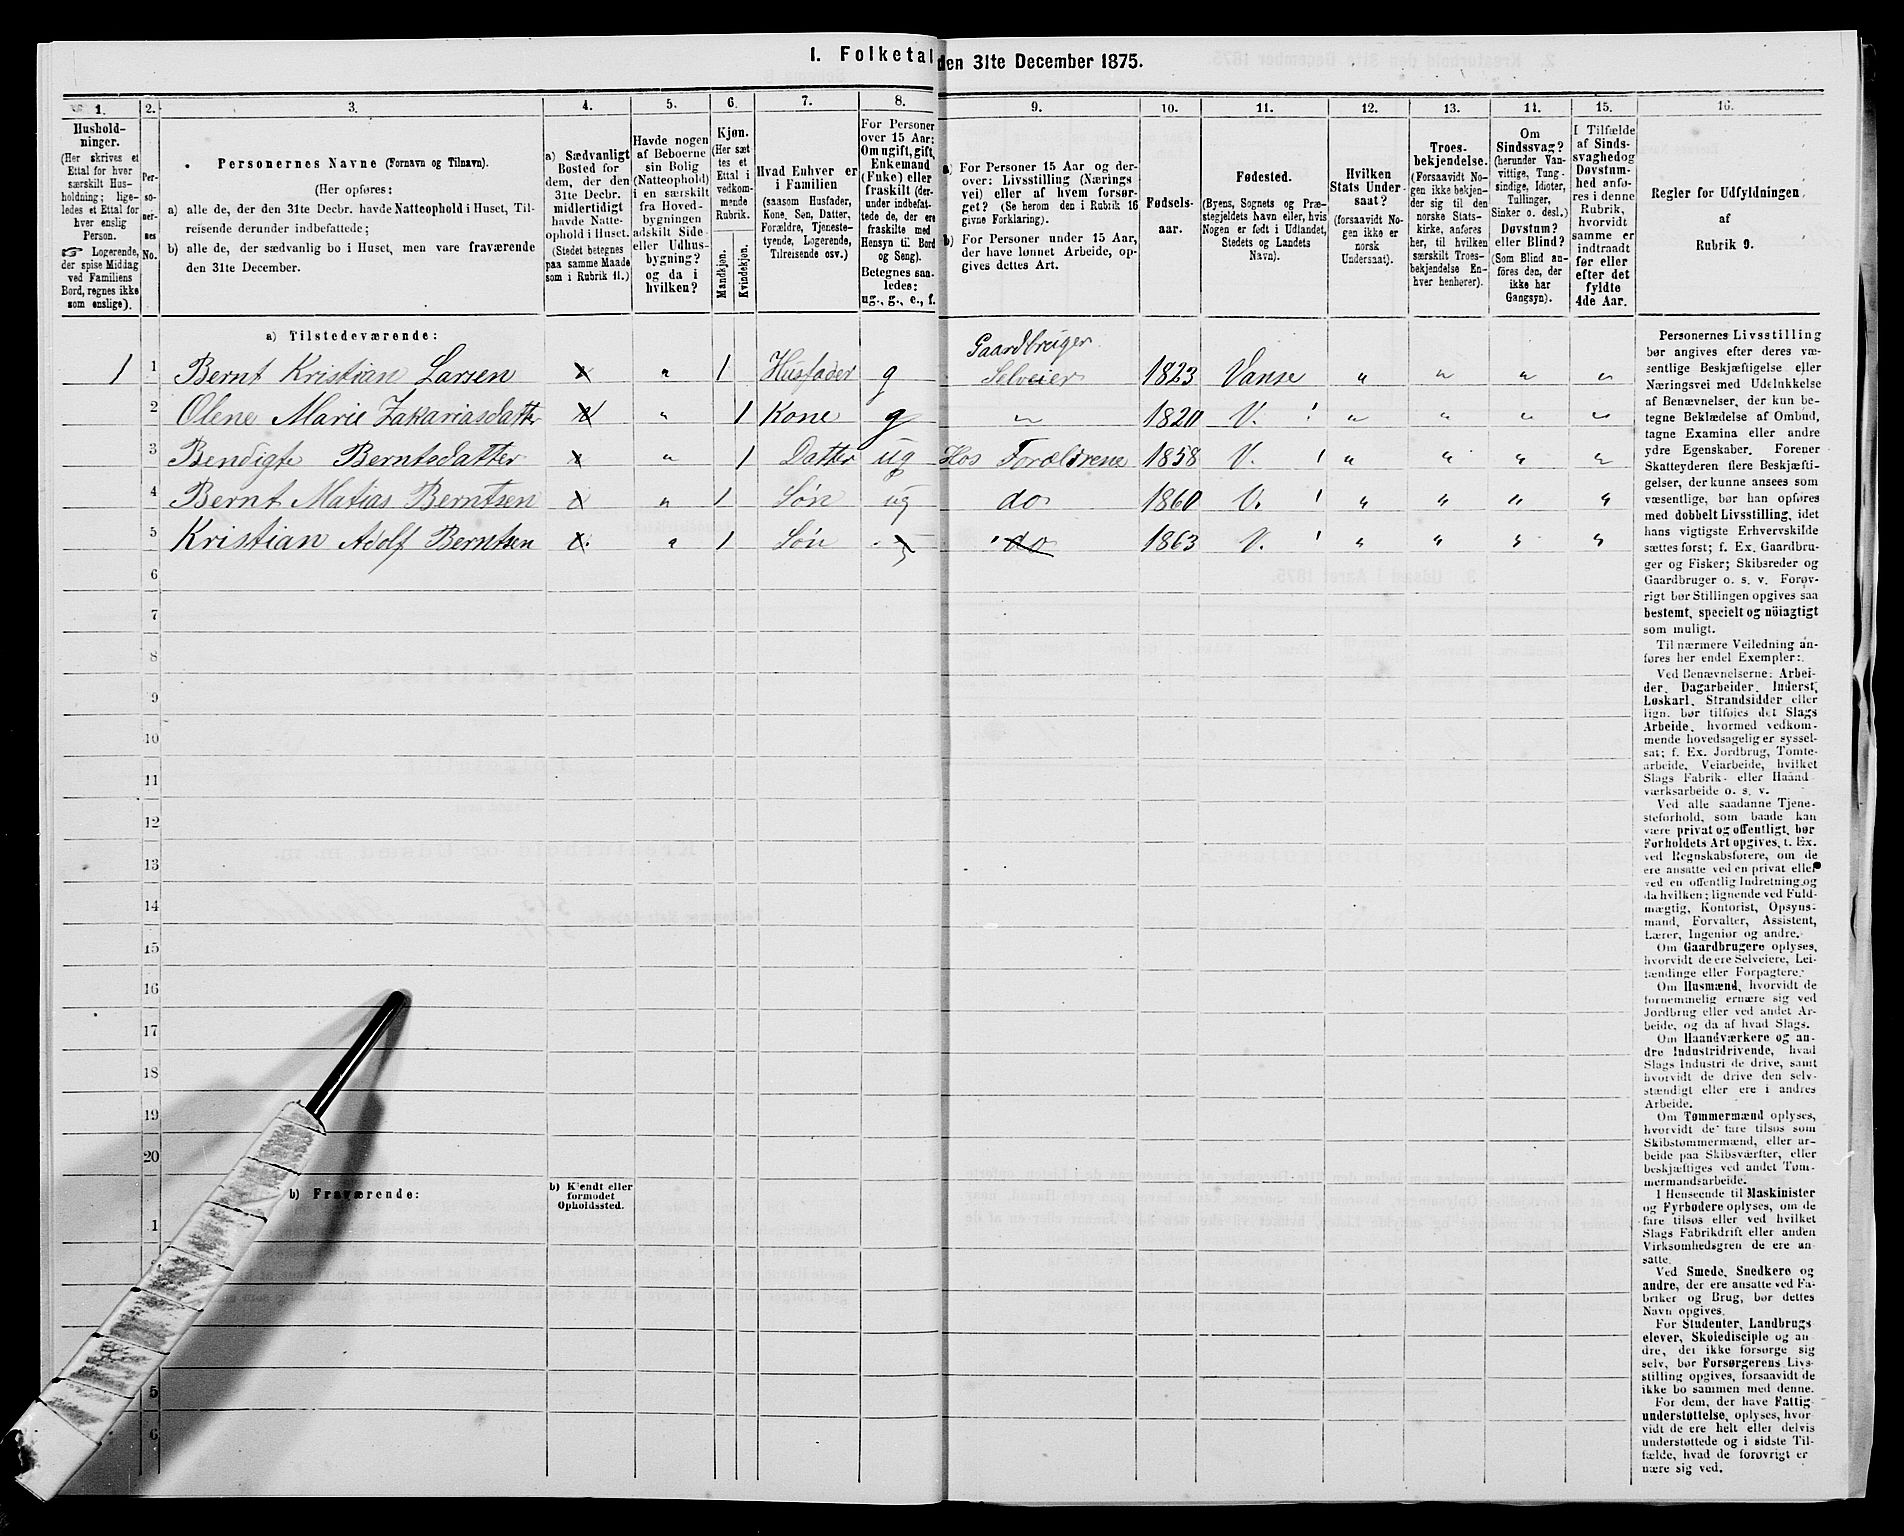 1. Folketal den 31te December 1875.
1. 2. 3. 4. 5. 6. 7. 8. 9. 10. 11. 12. 13. 14. 15. 16.
Hushold-
ninger.
(Her skrives et
Ettal for hver
særskilt Hus-
holdning; lige-
ledes et Ettal for
hver enslig
Person.
☞ Logerende,
der spise Middag
ved Familiens
Bord, regnes ikke
som enslige).
Per-
so-
ner-
nes
No.
Personernes Navne (Fornavn og Tilnavn).
(Her opføres:
a) alle de, der den 31te Decbr. havde Natteophold i Huset, Til-
reisende derunder indbefattede;
b) alle de, der sædvanlig bo i Huset, men vare fraværende
den 31te December.
a) Sædvanligt
Bosted for
dem, der den
31te Decbr.
midlertidigt
havde Natte-
ophold i Huset.
(Stedet betegnes
paa samme Maade
som i Rubrik 11.)
Havde nogen
af Beboerne
sin Bolig
(Natteophold)
i en særskilt
fra Hoved-
bygningen
adskilt Side-
eller Udhus-
bygning?
og da i
hvilken?
Kjøn.
(Her sæt-
tes et
Ettal i
vedkom-
mende
Rubrik.
Mandkjøn.
Kvindekjøn.
Hvad Enhver er
i Familien
(saasom Husfader,
Kone, Søn, Datter,
Forældre, Tjeneste-
tyende, Logerende,
Tilreisende osv.)
For Personer
over 15 Aar:
Om ugift, gift,
Enkemand
(Enke) eller
fraskilt (der-
under indbefat-
tede de, der ere
fraskilte med
Hensyn til Bord
og Seng).
Betegnes saa-
ledes:
ug., g., e., f.
a) For Personer 15 Aar og der-
over: Livsstilling (Nærings-
vei) eller af hvem forsør-
get? (Se herom den i Rubrik 16
givne Forklaring).
b) For Personer under 15 Aar,
der have lønnet Arbeide, op-
gives dettes Art.
Fødsels-
aar.
Fødested.
(Byens, Sognets og Præ-
stegjeldets Navn eller, hvis
Nogen er født i Udlandet,
Stedets og Landets
Navn).
Hvilken
Stats Under-
saat?
(forsaavidt No-
gen ikke er
norsk
Undersaat).
Troes-
bekjendelse.
(Forsaavidt No-
gen ikke bekjen-
der sig til den
norske Stats-
kirke, anføres
her, til hvilken
særskilt Troes-
bekjendelse En-
hver henhører).
Om
Sindssvag?
(herunder Van-
vittige, Tung-
sindige, Idioter,
Tullinger,
Sinker o. desl.)
Døvstum?
eller Blind?
(Som Blind an-
føres den, der
ikke har
Gangsyn).
I Tilfælde
af Sinds-
svaghed og
Døvstum-
hed anfø-
res i denne
Rubrik,
hvorvidt
samme er
indtraadt
før eller
efter det
fyldte
4de Aar.
Regler for Udfyldningen
af
Rubrik 9.
a) Tilstedeværende:
Gaardbruger
1 1 Bernt Kristian Larsen x " 1 Husfader g Selveier 1823 Vanse " " " "
2 Olene Marie Zakariasdatter x " 1 Kone g " 1820 V. ! " " " "
3 Bendigte Berntsdatter x " 1 Datter ug Hos Forældrene 1858 V. ! " " " "
4 Bernt Matias Berntsen x " 1 Søn ug do 1860 V. ! " " " "
5 Kristian Adolf Berntsen x " 1 Søn do 1863 V. ! " " " "
6
7
8
9
10
11
12
13
14
15
16
17
18
19
20
b) Fraværende:
b) Kjendt eller
formodet
Opholdssted.
1
5
6
Personernes Livsstilling
bør angives efter deres væ-
sentlige Beskjæftigelse eller
Næringsvei med Udelukkelse
af Benævnelser, der kun be-
tegne Beklædelse af Ombud,
tagne Examina eller andre
ydre Egenskaber. Forener
Skatteyderen flere Beskjæfti-
gelser, der kunne ansees som
væsentlige, bør han opføres
med dobbelt Livsstilling, idet
hans vigtigste Erhvervskilde
sættes først; f. Ex. Gaardbru-
ger og Fisker; Skibsreder og
Gaardbruger o. s. v. Forøv-
rigt bør Stillingen opgives saa
bestemt, specielt og nöiagtigt
som muligt.
Til nærmere Veiledning an-
føres her endel Exempler:
Ved Benævnelserne: Arbei-
der, Dagarbeider, Inderst,
Løskarl, Strandsidder eller
lign. bør tilføies det Slags
Arbeide, hvormed vedkom-
mende hovedsagelig er syssel-
sat; f. Ex. Jordbrug, Tomte-
arbeide, Veiarbeide, hvilket
Slags Fabrik- eller Haand-
værksarbeide o. s. v.
Ved alle saadanne Tjene-
steforhold, som baade kan
være privat og offentligt, bør
Forholdets Art opgives, t. Ex.
ved Regnskabsførere, om de
ere ansatte ved en privat eller
ved en offentlig Indretning og
da hvilken; lignende ved Fuld-
mægtig, Kontorist, Opsyns-
mand, Forvalter, Assistent,
Lærer, Ingeniør og andre.
Om Gaardbrugere oplyses,
hvorvidt de ere Selveiere, Lei-
lændinge eller Forpagtere.
Om Husmænd, hvorvidt de
fornemmelig ernære sig ved
Jordbrug eller ved andet Ar-
beide, og da af hvad Slags.
Om Haandværkere og an-
dre Industridrivende, hvad
Slags Industri de drive, samt
hvorvidt de drive den selv-
stændigt eller ere i andres
Arbeide.
Om Tømmermænd oplyses,
hvorvidt de fare tilsøs som
Skibstømmermænd, eller ar-
beide paa Skibsværfter, eller
beskjæftiges ved andet Tøm-
mermandsarbeide.
I Henseende til Maskinister
og Fyrbødere oplyses, om de
fare tilsøs eller ved hvilket
Slags Fabrikdrift eller anden
Virksomhedsgren de ere an-
satte.
Ved Smede, Snedkere og
andre, der ere ansatte ved Fa-
briker og Brug, bør dettes
Navn opgives.
For Studenter, Landbrugs-
elever, Skoledisciple og an-
dre, der ikke forsørge sig
selv, bør Forsørgerens Livs-
stilling opgives, forsaavidt de
ikke bo sammen med denne.
For dem, der have Fattig-
understøttelse, oplyses, hvor-
vidt de ere helt eller delvis
understøttede og i sidste Til-
fælde, hvad de forøvrigt er-
nære sig ved.